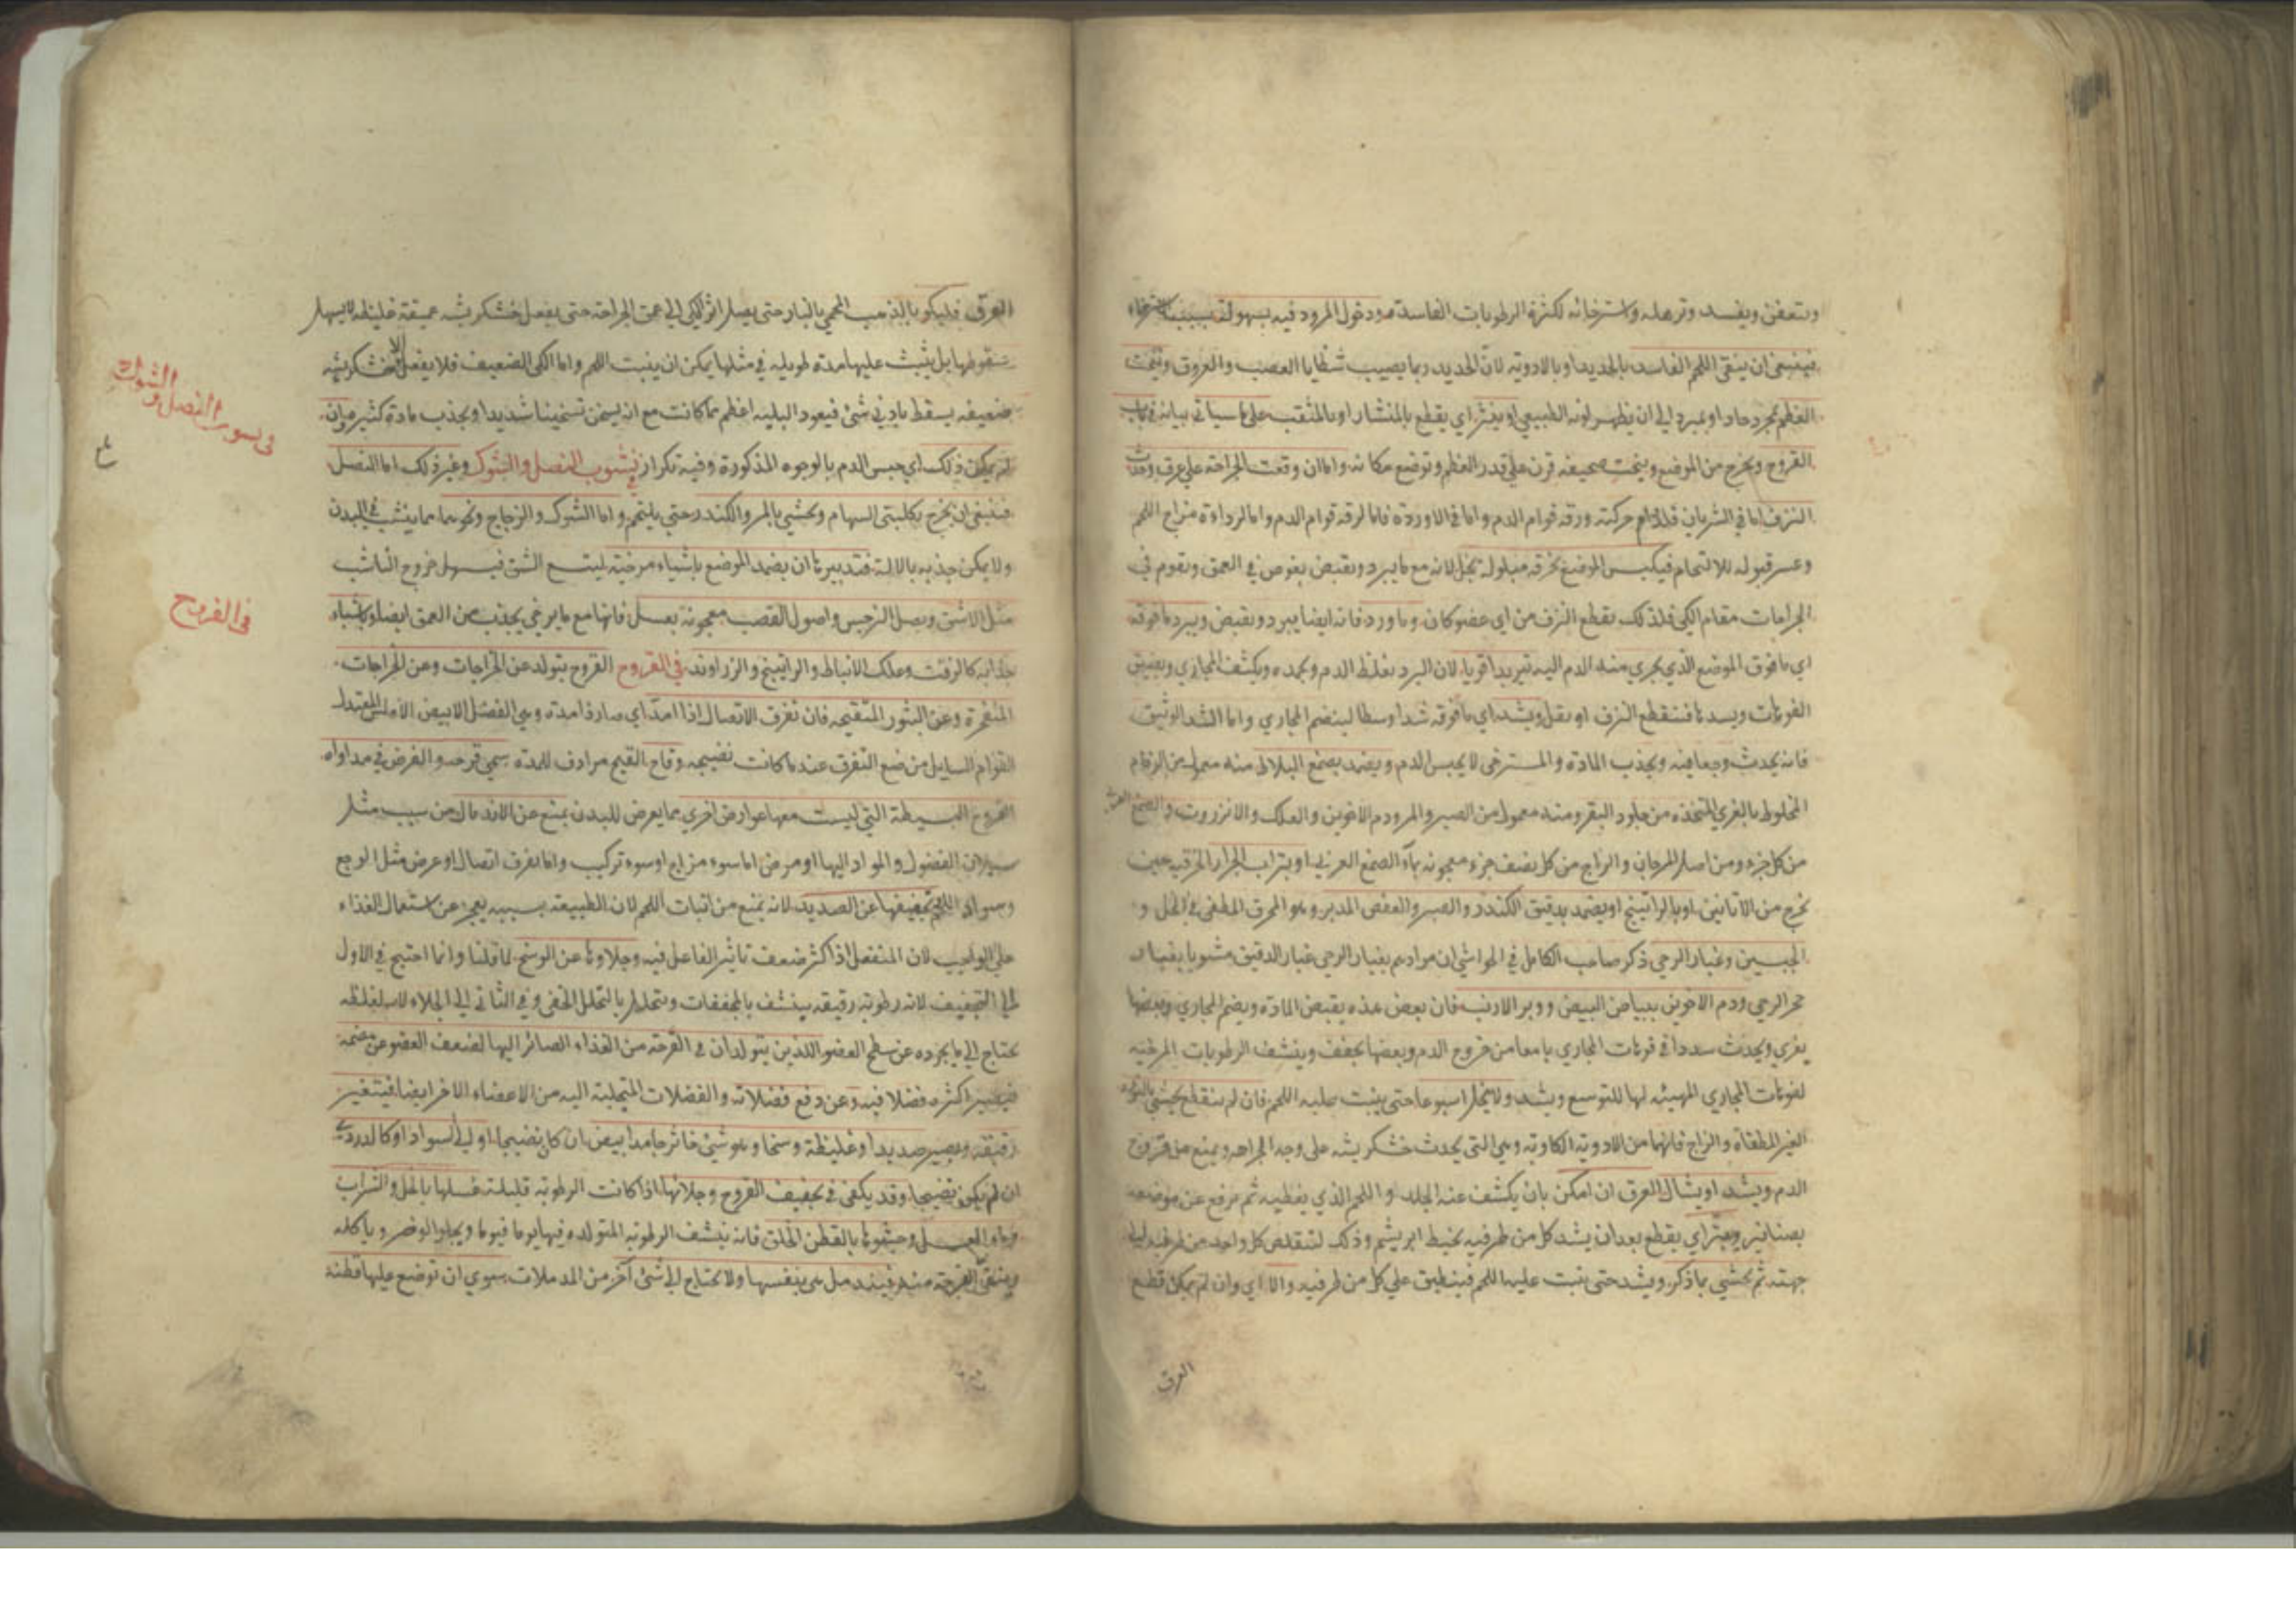 ويتعفن ويفسد وترهله واسترخائه لكثرة الرطوبات الفاسدة ودخول المرود فيه بسهولة بسبب الاسترخاء
فينبغي ان ينقى اللحم الفاسد بالحديد او بالادوية لان الحديد ربما يصيب شظايا العصب والعروق وينحت
العظم بمجرد حاد او بمبرد الى ان يظهر لونه الطبيعي او ينشر اي يقطع بالمنشار او بالمثقب على ما سياتي بيانه في باب
القروح ويخرج من الموضع وينحت صحيفة قرن على قدر العظم وتوضع مكانه واما ان وقعت الجراحة على عرق وحدث
النزف اما في الشريان فلدوام حركته ورقة قوام الدم واما في الاوردة فاما لرقة قوام الدم واما لرداءة مزاج اللحم
وعسر قبوله للالتحام فيكبس الموضع بخرقة مبلولة بخل لانه مع ما يبرد ويقبض يغوص في العمق ويقوم في
الجراحات مقام الكي فلذلك يقطع النزف من اي عضو كان وماورد فانه ايضا يبرد ويقبض ويبرد ما فوقه
اي ما فوق الموضع الذي يجري منه الدم اليه تبريدا قويا لان البرد يغلظ الدم ويجمده ويكثف المجاري ويضيق
الفوهات ويسدها فينقطع النزف او يقل ويشد اي ما فوقه شدا وسطا لينضم المجاري واما الشد الوثيق
فانه يحدث وجعا فيه ويجذب المادة والمسترخي لا يحبس الدم ويضمد بصمغ البلاط منه معمول من الرخام
المخلوط بالغري المتخذه من جلود البقر ومنه معمول من الصبر والمر ودم الاخوين والعلك والانزروت والصمغ العربي
من كل جزء ومن اصل المرجان والزاج من كل نصف جزء معجونة بماء الصمغ العربي او بتراب الجرار الخزفية حين
تخرج من الاتانين او بالراتينج او يضمد بدقيق الكندر والصبر والعفص المدبر وهو المحرق المطفى في الخل و
الجبسين وغبار الرحى ذكر صاحب الكامل في الحواشي ان مرادهم بغبار الرحى غبار الدقيق مشوبا بغبار
حجر الرحى ودم الاخوين ببياض البيض ووبر الارنب فان بعض هذه يقبض المادة ويضم المجاري وبعضها
يغري ويحدث سددا في فوهات المجاري مانعا من خروج الدم وبعضها يجفف وينشف الرطوبات المرخية
لفوهات المجاري المهيئة لها للتوسع ويشد ولا يحل اسبوعا حتى ينبت عليه اللحم فان لم ينقطع يحشى بالنورة
الغير المطفاة والزاج فانهما من الادوية الكاوية وهي التي يحدث خشكريشة على وجه الجراحة ويمنع من خروج
الدم ويشد او يشال العرق ان امكن بان يكشف عنه الجلد واللحم الذي يغطيه ثم يرفع عن موضعه
بصنانير ويبتر اي يقطع بعد ان يشد كل من طرفيه بخيط ابريشم وذلك لتتقلص كل واحد من طرفيه الى
جهته ثم يحشى بما ذكر ويشد حتى ينبت عليه اللحم فينطبق على كل من طرفيه والا اي وان لم يمكن قطع
العرق
العرق فليكو بالذهب المحمي بالنار حتى يصل اثر الكي الى عمق الجراحة حتى يفعل خشكريشة عميقة غليظة لا يسهل
سقوطها بل يثبت عليها مدة طويلة في مثلها يمكن ان ينبت اللحم واما الكي الضعيف فلا يفعل الا خشكريشة
ضعيفة يسقط بادنى شئ فيعود البلية اعظم مما كانت مع انه يسخن تسخينا شديدا ويجذب مادة كثيرة وان
لم يمكن ذلك اي حبس الدم بالوجوه المذكورة وفيه تكرار في نشوب النصل والشوك وغير ذلك اما النصل
فينبغي ان يخرج بكلبتي السهام ويحشى بالمر والكندر حتى يلتحم واما الشوك والزجاج ونحوهما مما ينشب في البدن
ولا يمكن جذبه بالآلة فتدبيرها ان يضمد الموضع باشياء مرخية ليتسع الشق فيسهل خروج الناشب
مثل الاشق وبصل النرجس واصول القصب معجونة بعسل فانها مع ما يرخي يجذب من العمق ايضا وباشياء
جذابة كالزفت وعلك الانباط والراتينج والزراوند في القروح القروح يتولد عن الخراجات وعن الجراحات
المنفجرة وعن البثور المتقيحة فان تفرق الاتصال اذا امدّ اي صار ذا مدة وهي الفضل الابيض الاملس المعتدل
القوام السايل من ضع التفرق عند ما كانت نضيجة وقاح القيح مرادف للمدة سمي قرحة والغرض في مداواة
القروح البسيطة التي ليست معها عوارض اخرى مما يعرض للبدن يمنع عن الاندمال من سبب مثل
سيلان الفضول والمواد اليها او مرض اما سوء مزاج او سوء تركيب واما تفرق اتصال او عرض مثل الوجع
وسواد اللحم تجفيفها عن الصديد لانه يمنع من انبات اللحم لان الطبيعة بسببه يعجز عن استعمال الغذاء
على الواجب لان المنفعل اذا كثر ضعف تاثير الفاعل فيه وجلاوها عن الوسخ لما قلنا وانما احتيج في الاول
الى التجفيف لانه رطوبة رقيقة ينشف بالمجففات ويتحلل بالتحلل الخفي وفي الثاني الى الجلاء لانه لغلظه
يحتاج الى ما يجرده عن سطح العضو اللذين يتولدان في القرحة من الغذاء الصائر اليها لضعف العضو عن هضمه
فيصير اكثره فضلا فيه وعن دفع فضلاته والفضلات المتحلبة اليه من الاعضاء الاخر ايضا فيتغير
رقيقة ويصير صديدا وغليظة وسخا وهو شئ خاثر جامد ابيض ان كان نضيجا او الى السواد او كالدردي
ان لم يكن نضيجا وقد يكفي في تجفيف القروح وجلائها اذا كانت الرطوبة قليلة غسلها بالخل والشراب
وماء العسل وحشوها بالقطن الخلق فانه ينشف الرطوبة المتولدة فيها يوما فيوما ويجلو الوضر وياكله
وينقي القرحة منه فيندمل هي بنفسها ولا يحتاج الى شئ آخر من المدملات سوى ان توضع عليها قطنة
في نشوب النصل والشوك
في القروح